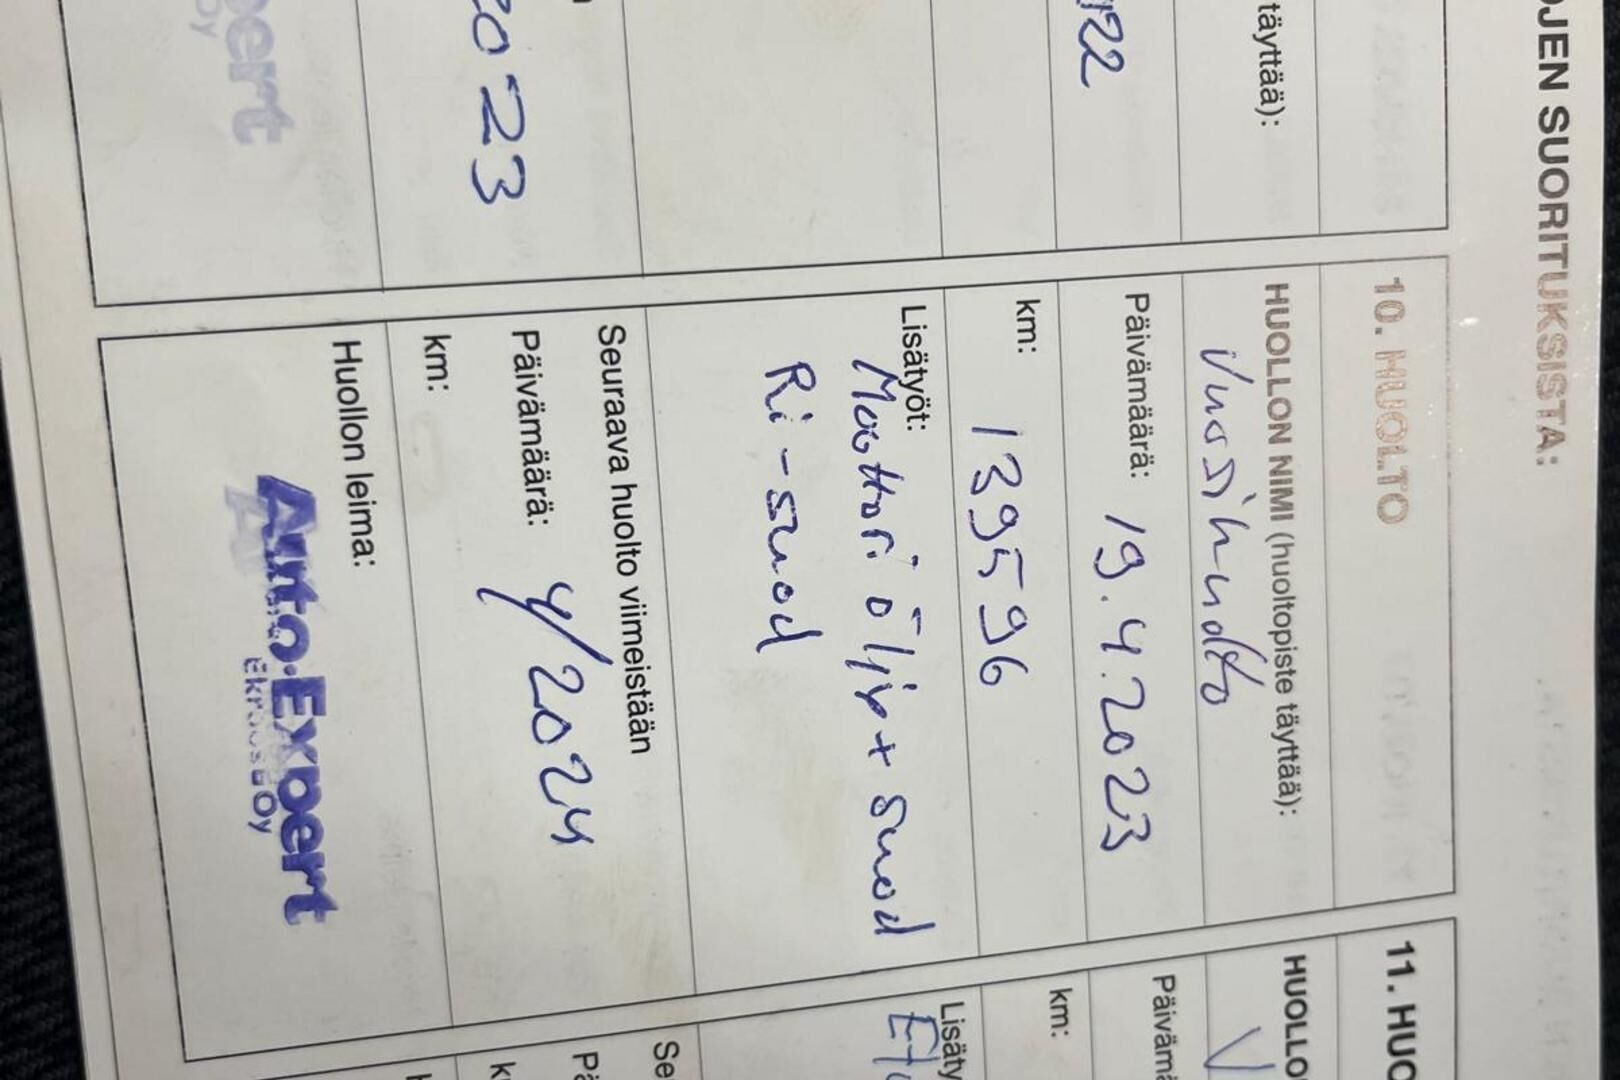 JEN SUORITUKSISTA:
täyttää):
22
2023
pert
Oy
10. HUOLTO
HUOLLON NIMI (huoltopiste täyttää):
Vuosihuolto
Päivämäärä: 19.4.2023
km: 139596
Lisätyöt:
Moottoriöljy + suod
Ri-suod
Seuraava huolto viimeistään
Päivämäärä: 4/2024
km:
Huollon leima:
Auto-Expert
Ekroos Oy
11. HUO
HUOLLO
V
Päivämä
km:
Lisäty
Se
Pä
k